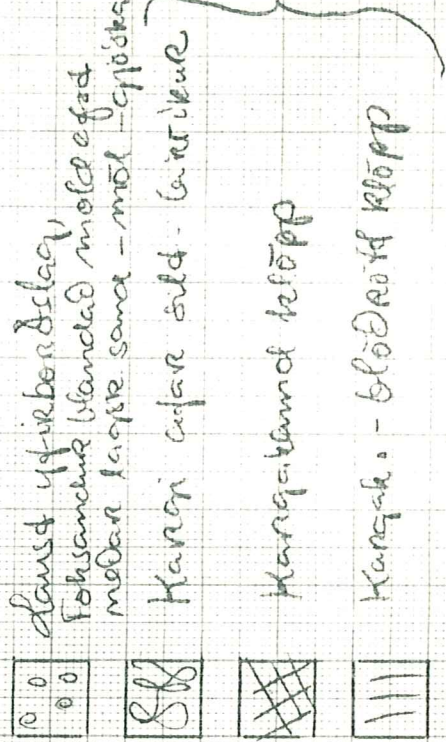 Laust yfirborðslag,
Foksandur blandað mold efst
neðar lagsk sand - möl - gjóska
Kargi afar síld -
Kargakennd klöpp
Kargak. - blöðrótt klöpp